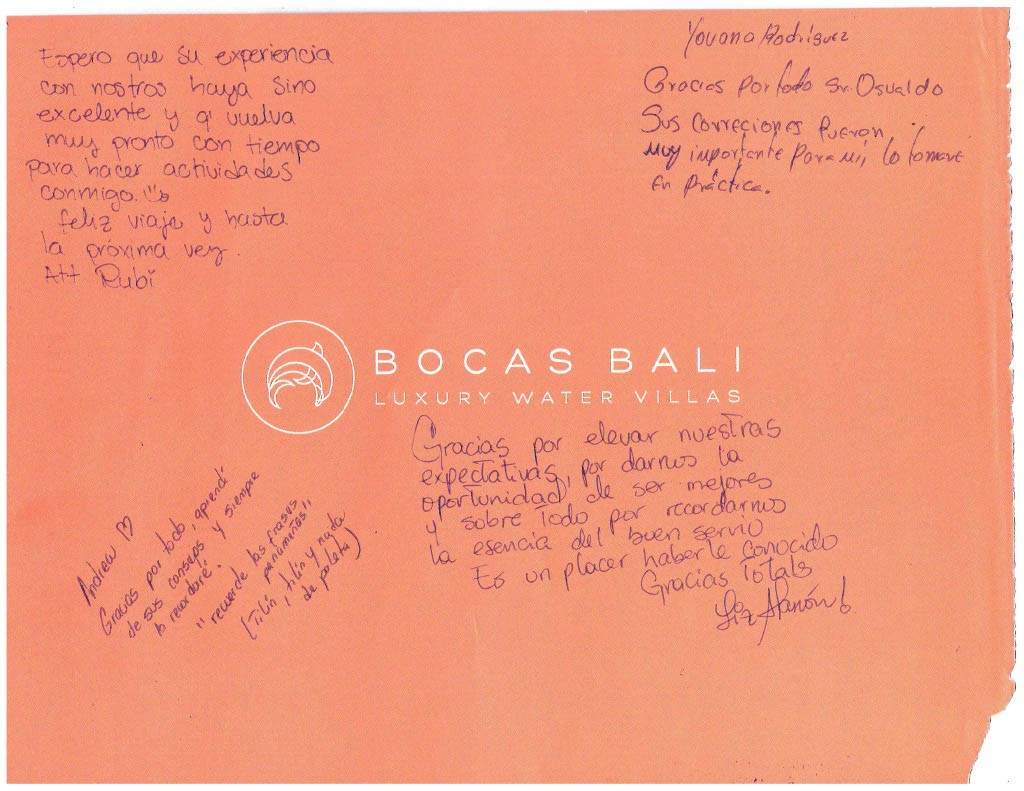 Espero que su experiencia
con nostros haya sino
excelente y q' vuelva
muy pronto con tiempo
para hacer actividades
conmigo.
feliz viaje y hasta
la próxima vez.
Att Rubi
Yovana Rodríguez
Gracias por todo Sr. Osvaldo
Sus correciones fueron
muy importante para mi, lo tomare
en práctica.
BOCAS BALI
LUXURY WATER VILLAS
Gracias por elevar nuestras
expectativas, por darnos la
oportunidad de ser mejores
y sobre todo por recordarnos
la esencia del buen servio
Es un placer haberle conocido
Gracias Totals
Liz
Andrew
Gracias por todo, aprendí
de sus consejos y siempre
lo recordaré.
"recuerde las frases
panameñas"
(Tilín, tilín y nada
de paleta)